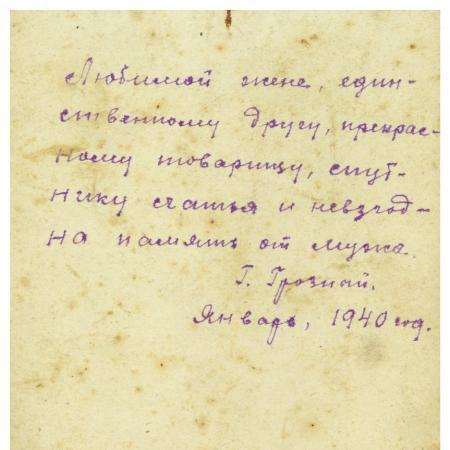 Любимой жене, един-
ственному другу, прекрас-
ному товарищу, спут-
нику счастья и невзгод-
на память от мужа.
Г. Грозный.
Январь, 1940 год.